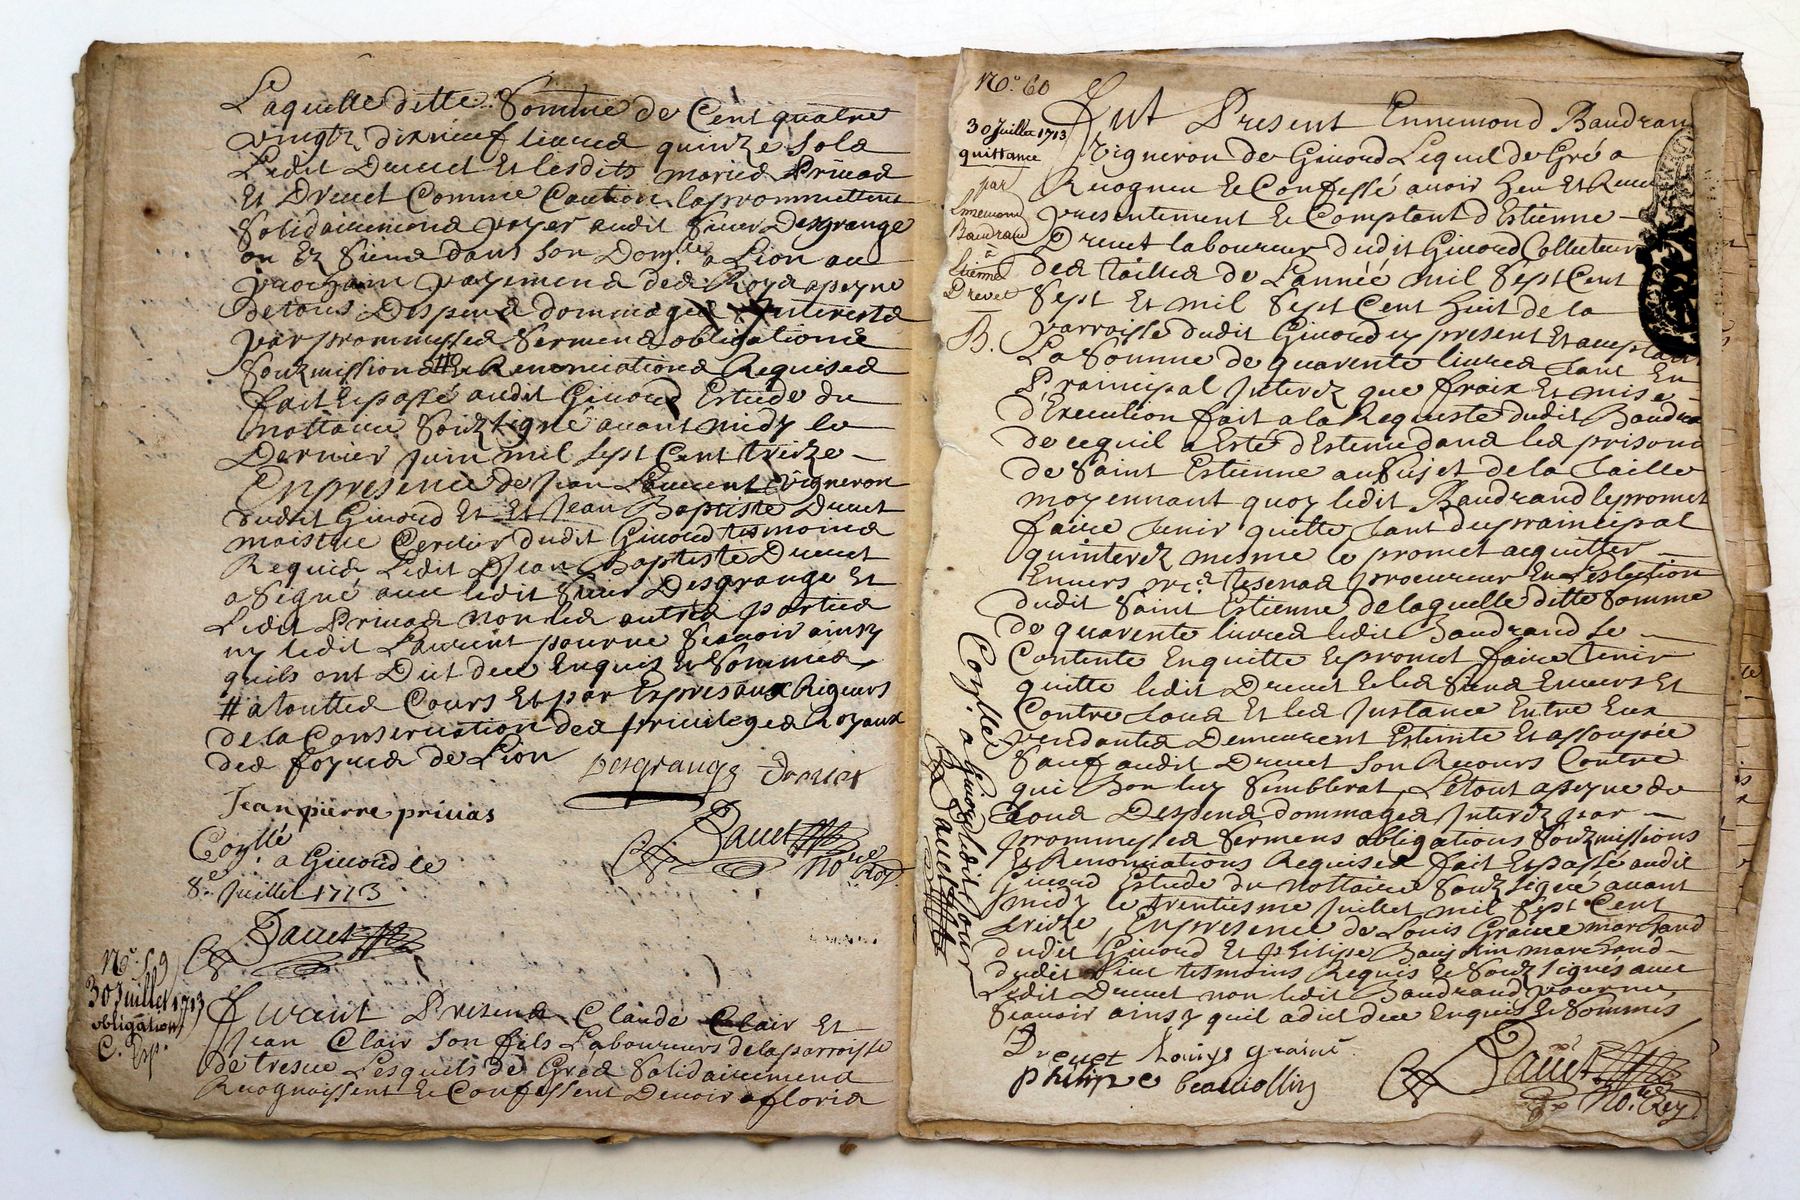 Laquelle ditte Somme de Cent quatre
vingtz dixneuf livres quinze sols
Ledit Drevet Et lesdits mariés Privas
Et Drevet Comme Caution laprommettent
Solidairement payer audit Sieur Desgrange
ou Ez Siens dans son Dom.lle a Lion au
prochain payement des Roys apeyne
detous Despens dommages Interests
par prommesses Serment obligations
Souzmissions # Et Renonciations Requises
fait Et passé audit Givord Estude du
nottaire Souzsigné avant midy le
Dernier Juin mil Sept Cent treize
En presence de Jean Laurent Vigneron
dudit Givord Et Et Jean Baptiste Drevet
maistre Cordier dudit Givord tesmoins
Requis Ledit Jean Baptiste Drevet
a Signé avec ledit Sieur Desgrange Et
Ledit Privas non les autres parties
ny ledit Laurent pour ne Scavoir ainsy
quils ont Dit de ce Enquis Et Sommés
# a touttes Cours Et par Expres aux Rigueurs
de la Conservation des privileges Royaux
des foyres de Lion
Desgrange Drevet
Jean pierre privas
No.re Roy.
Con.llé
a Givord le
8.e Juillet 1713
No. 59
30 Juillet 1713
obligation
C. Exp.
Furent Presens Claude Clair Et
Jean Clair Son fils Laboureurs de la parroisse
de tresve Lesquels de Gré Solidairement
Recognoissent Et Confessent Devoir a floris
No. 60
30 Juillet 1713
quittance
par
Ennemond
Baudrand
a
Estienne
Drevet
B.
Fut Present Ennemond Baudran
Vigneron de Givord Lequel de Gré a
Recogneu Et Confessé avoir heu Et Receu
presentement Et Comptant d'Estienne
Drevet laboureur dudit Givord Collecteur
des tailles de L'année mil Sept Cent
Sept Et mil Sept Cent huit de la
parroisse dudit Givord cy present Et acceptant
La Somme de quarente livres tant En
Prainsipal Interez que fraix Et mise
d'Execution fait a la Requeste dudit Baudran
de ce quil a Esté d'Estenu dans les prisons
de Saint Estienne au Sujet de la taille
moyennant quoy ledit Baudrand le promet
faire tenir quitte tant du prainsipal
quinterez mesme le promet acquitter
Envers procureur En L'eslection
dudit Saint Estienne de laquelle ditte Somme
de quarente livres ledit Baudrand Se
Contente Enquitte Et promet faire tenir
quitte ledit Drevet Et les Siens Envers Et
Contre tous Et les Instance Entre Eux
pendantes Demeurent Esteinte Et assoupie
Sauf audit Drevet Son Recours Contre
qui Bon luy Semblerat, Le tout a peyne de
tous Despens dommages Interez par
prommesses Sermens obligations Souzmissions
Et Renonciations Requises fait Et passé audit
Givord Estude du nottaire Souzsigné avant
midy le trentiesme Juillet mil Sept Cent
treize, En presence de Louis Graine marchand
dudit Givord Et philipe marchand
dudit lieu tesmoins Requis Et Souzsignés avec
Ledit Drevet non ledit Baudrand pour ne
Scavoir ainsy quil a dit de ce Enquis Et Sommés
Drevet Louys graine
philipe
No.re Roy
Con.llé a Givord ledit Jour